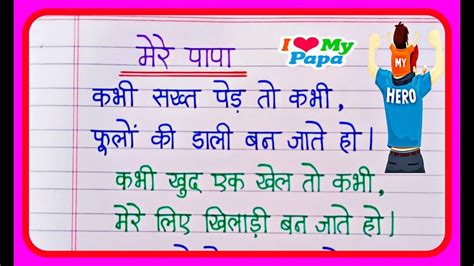 मेरे पापा
I My
Papa
कभी सख्त पेड़ तो कभी,
फूलों की डाली बन जाते हो।
कभी खुद एक खेल तो कभी,
मेरे लिए खिलाड़ी बन जाते हो।
MY
HERO